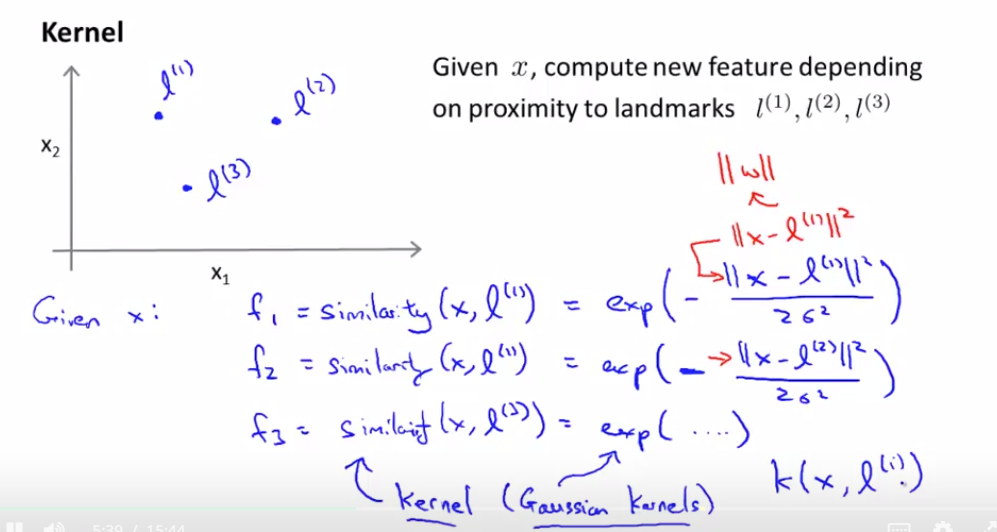 Kernel
Given x, compute new feature depending
on proximity to landmarks l⁽¹⁾, l⁽²⁾, l⁽³⁾
l⁽¹⁾
l⁽²⁾
l⁽³⁾
x₂
x₁
||w||
||x - l⁽¹⁾||²
Given x: f₁ = similarity (x, l⁽¹⁾) = exp(- ||x - l⁽¹⁾||² / 2σ²)
f₂ = similarity (x, l⁽¹⁾) = exp(- ||x - l⁽²⁾||² / 2σ²)
f₃ = similarity (x, l⁽³⁾) = exp( ....)
kernel (Gaussian kernels)
k(x, l⁽ⁱ⁾)
5:39 / 15:44